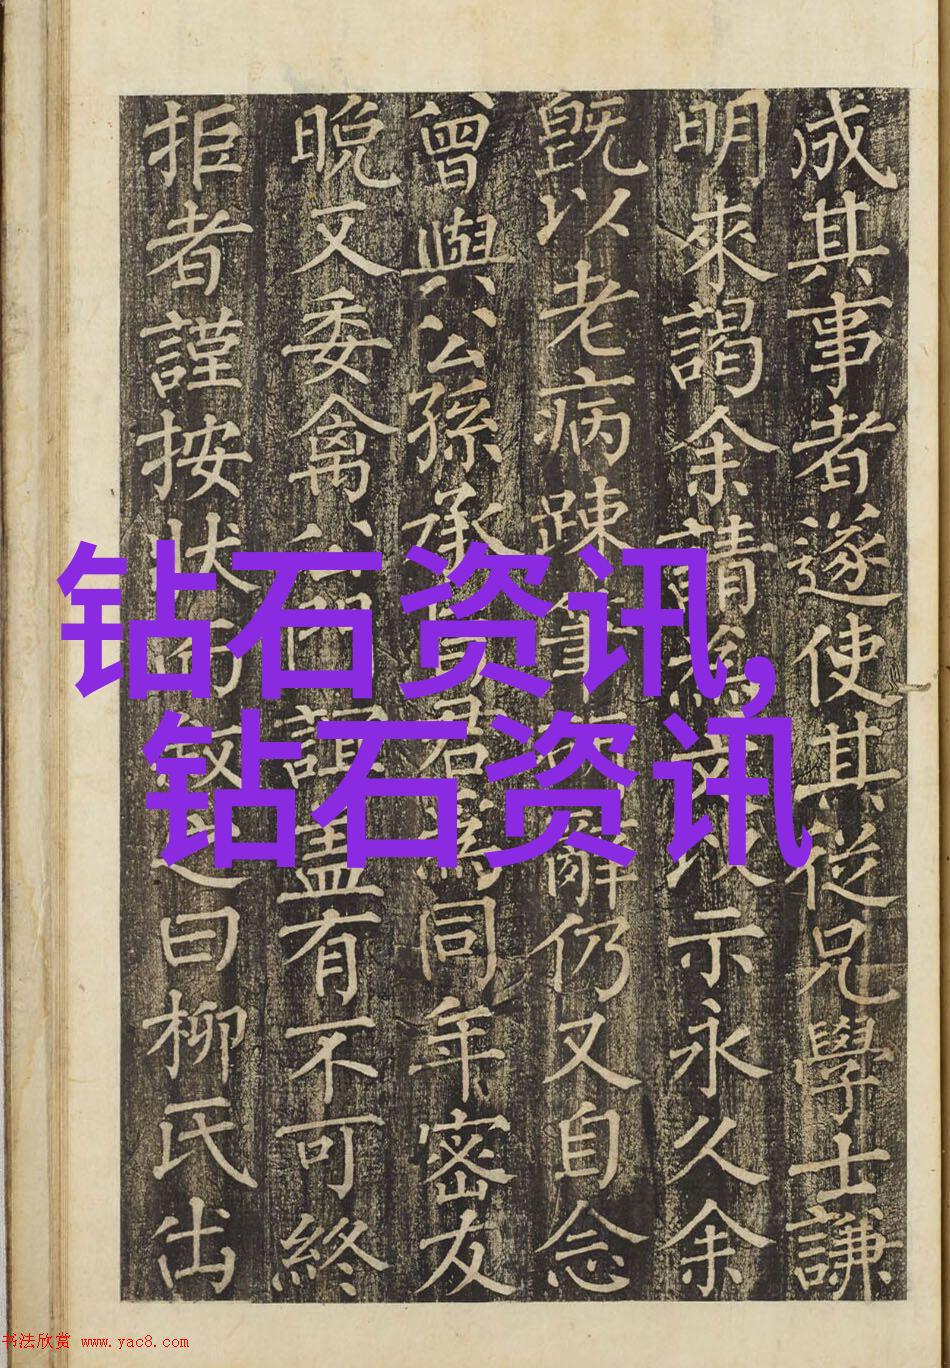 成其事者遂使其從兄學士謙
明來謁余請為以示永久余
既以老病踈筆辭仍又自念
曾與公孫承君為同年密友
晚又委禽公誼盖有不可終
拒者謹按狀而叙之曰柳氏出
钻石资讯,
钻石资讯
书法欣赏 www.yac8.com